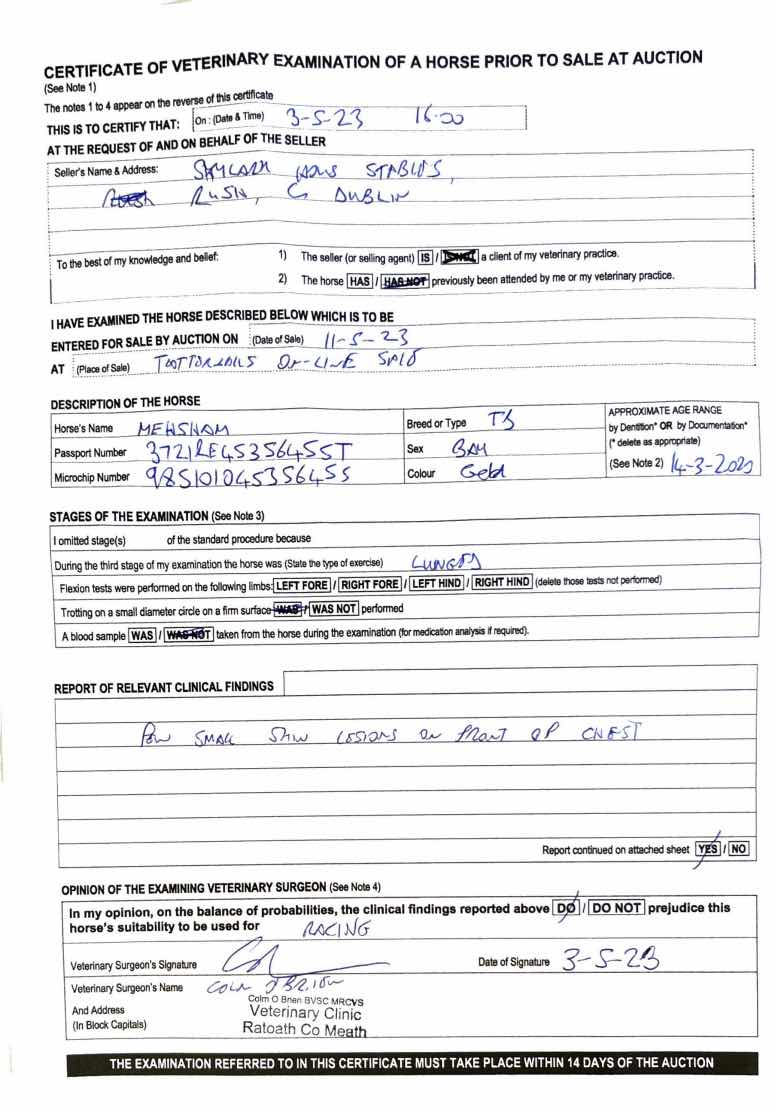 CERTIFICATE OF VETERINARY EXAMINATION OF A HORSE PRIOR TO SALE AT AUCTION
(See Note 1)
The notes 1 to 4 appear on the reverse of this certificate
THIS IS TO CERTIFY THAT: On : (Date & Time) 3-5-23 16.00
AT THE REQUEST OF AND ON BEHALF OF THE SELLER
Seller's Name & Address: STABLES,
RUSH, Co DUBLIN
To the best of my knowledge and belief: 1) The seller (or selling agent) IS / IS NOT a client of my veterinary practice.
2) The horse HAS / HAS NOT previously been attended by me or my veterinary practice.
I HAVE EXAMINED THE HORSE DESCRIBED BELOW WHICH IS TO BE
ENTERED FOR SALE BY AUCTION ON (Date of Sale) 11-5-23
AT (Place of Sale) TATTERSALLS ON-LINE SALE
DESCRIPTION OF THE HORSE
Horse's Name MEHSHAM Breed or Type TB APPROXIMATE AGE RANGE
by Dentition* OR by Documentation*
Passport Number 372IRE45356455T Sex BAY (* delete as appropriate)
Microchip Number 985101045356455 Colour Geld (See Note 2) 14-3-2020
STAGES OF THE EXAMINATION (See Note 3)
I omitted stage(s) of the standard procedure because
During the third stage of my examination the horse was (State the type of exercise) LUNGED
Flexion tests were performed on the following limbs: LEFT FORE / RIGHT FORE / LEFT HIND / RIGHT HIND (delete those tests not performed)
Trotting on a small diameter circle on a firm surface WAS / WAS NOT performed
A blood sample WAS / WAS NOT taken from the horse during the examination (for medication analysis if required).
REPORT OF RELEVANT CLINICAL FINDINGS
Few SMALL SKIN LESIONS ON FRONT OF CHEST
Report continued on attached sheet YES / NO
OPINION OF THE EXAMINING VETERINARY SURGEON (See Note 4)
In my opinion, on the balance of probabilities, the clinical findings reported above DO / DO NOT prejudice this
horse's suitability to be used for RACING
Veterinary Surgeon's Signature Date of Signature 3-5-23
Veterinary Surgeon's Name COLM O BRIEN
Colm O Brien BVSC MRCVS
And Address Veterinary Clinic
(In Block Capitals) Ratoath Co Meath
THE EXAMINATION REFERRED TO IN THIS CERTIFICATE MUST TAKE PLACE WITHIN 14 DAYS OF THE AUCTION